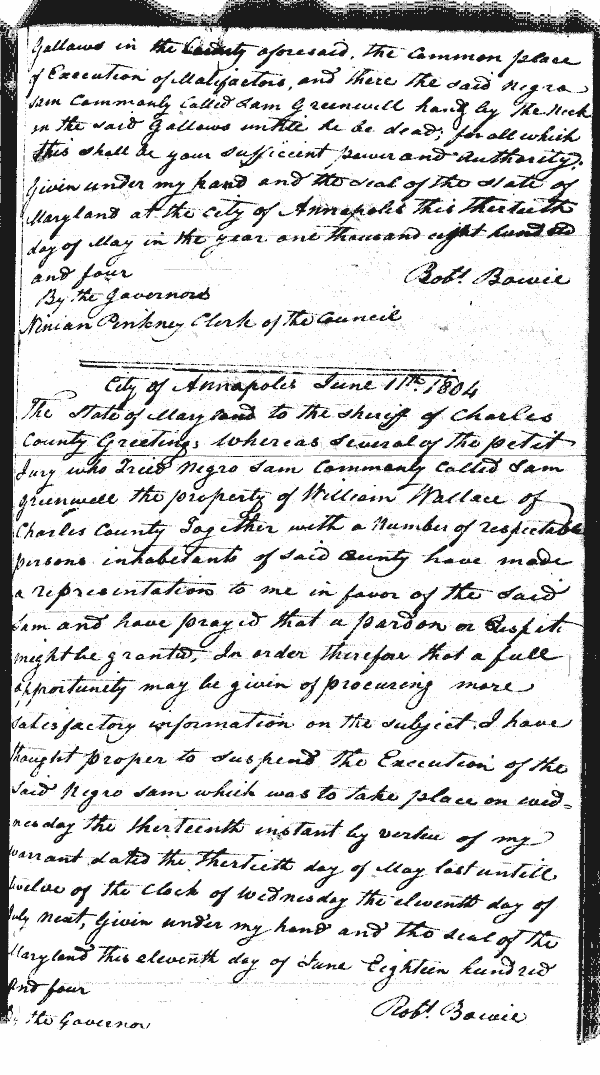 Gallows in the County aforesaid, the Common place
of Execution of Malefactors, and there the said Negro
Sam Commonly Called Sam Greenwell hang by the Neck
on the said Gallows untill he be dead; for all which
this shall be your sufficient power and Authority.
Given under my hand and the seal of the State of
Maryland at the City of Annapolis this thirtieth
day of May in the year one thousand eight hundred
and four
Robt. Bowie
By the Governor
Ninian Pinkney Clerk of the Council
City of Annapolis June 11th. 1804
The State of Maryland to the Sheriff of Charles
County Greeting; Whereas several of the petit
Jury who Tried Negro Sam Commonly Called Sam
Greenwell the property of William Wallace of
Charles County Together with a Number of respectable
persons inhabitants of said County have made
a representation to me in favor of the said
Sam and have prayed that a pardon or Respite
might be granted, In order therefore that a full
opportunity may be given of procuring more
satisfactory information on the subject. I have
thought proper to suspend the Execution of the
said Negro Sam which was to take place on wed=
nesday the thirteenth instant by vertue of my
warrant dated the thirtieth day of May last untill
twelve of the Clock of Wednesday the eleventh day of
July next, Given under my hand and the seal of the
Maryland this eleventh day of June Eighteen hundred
and four
Robt. Bowie
By the Governor